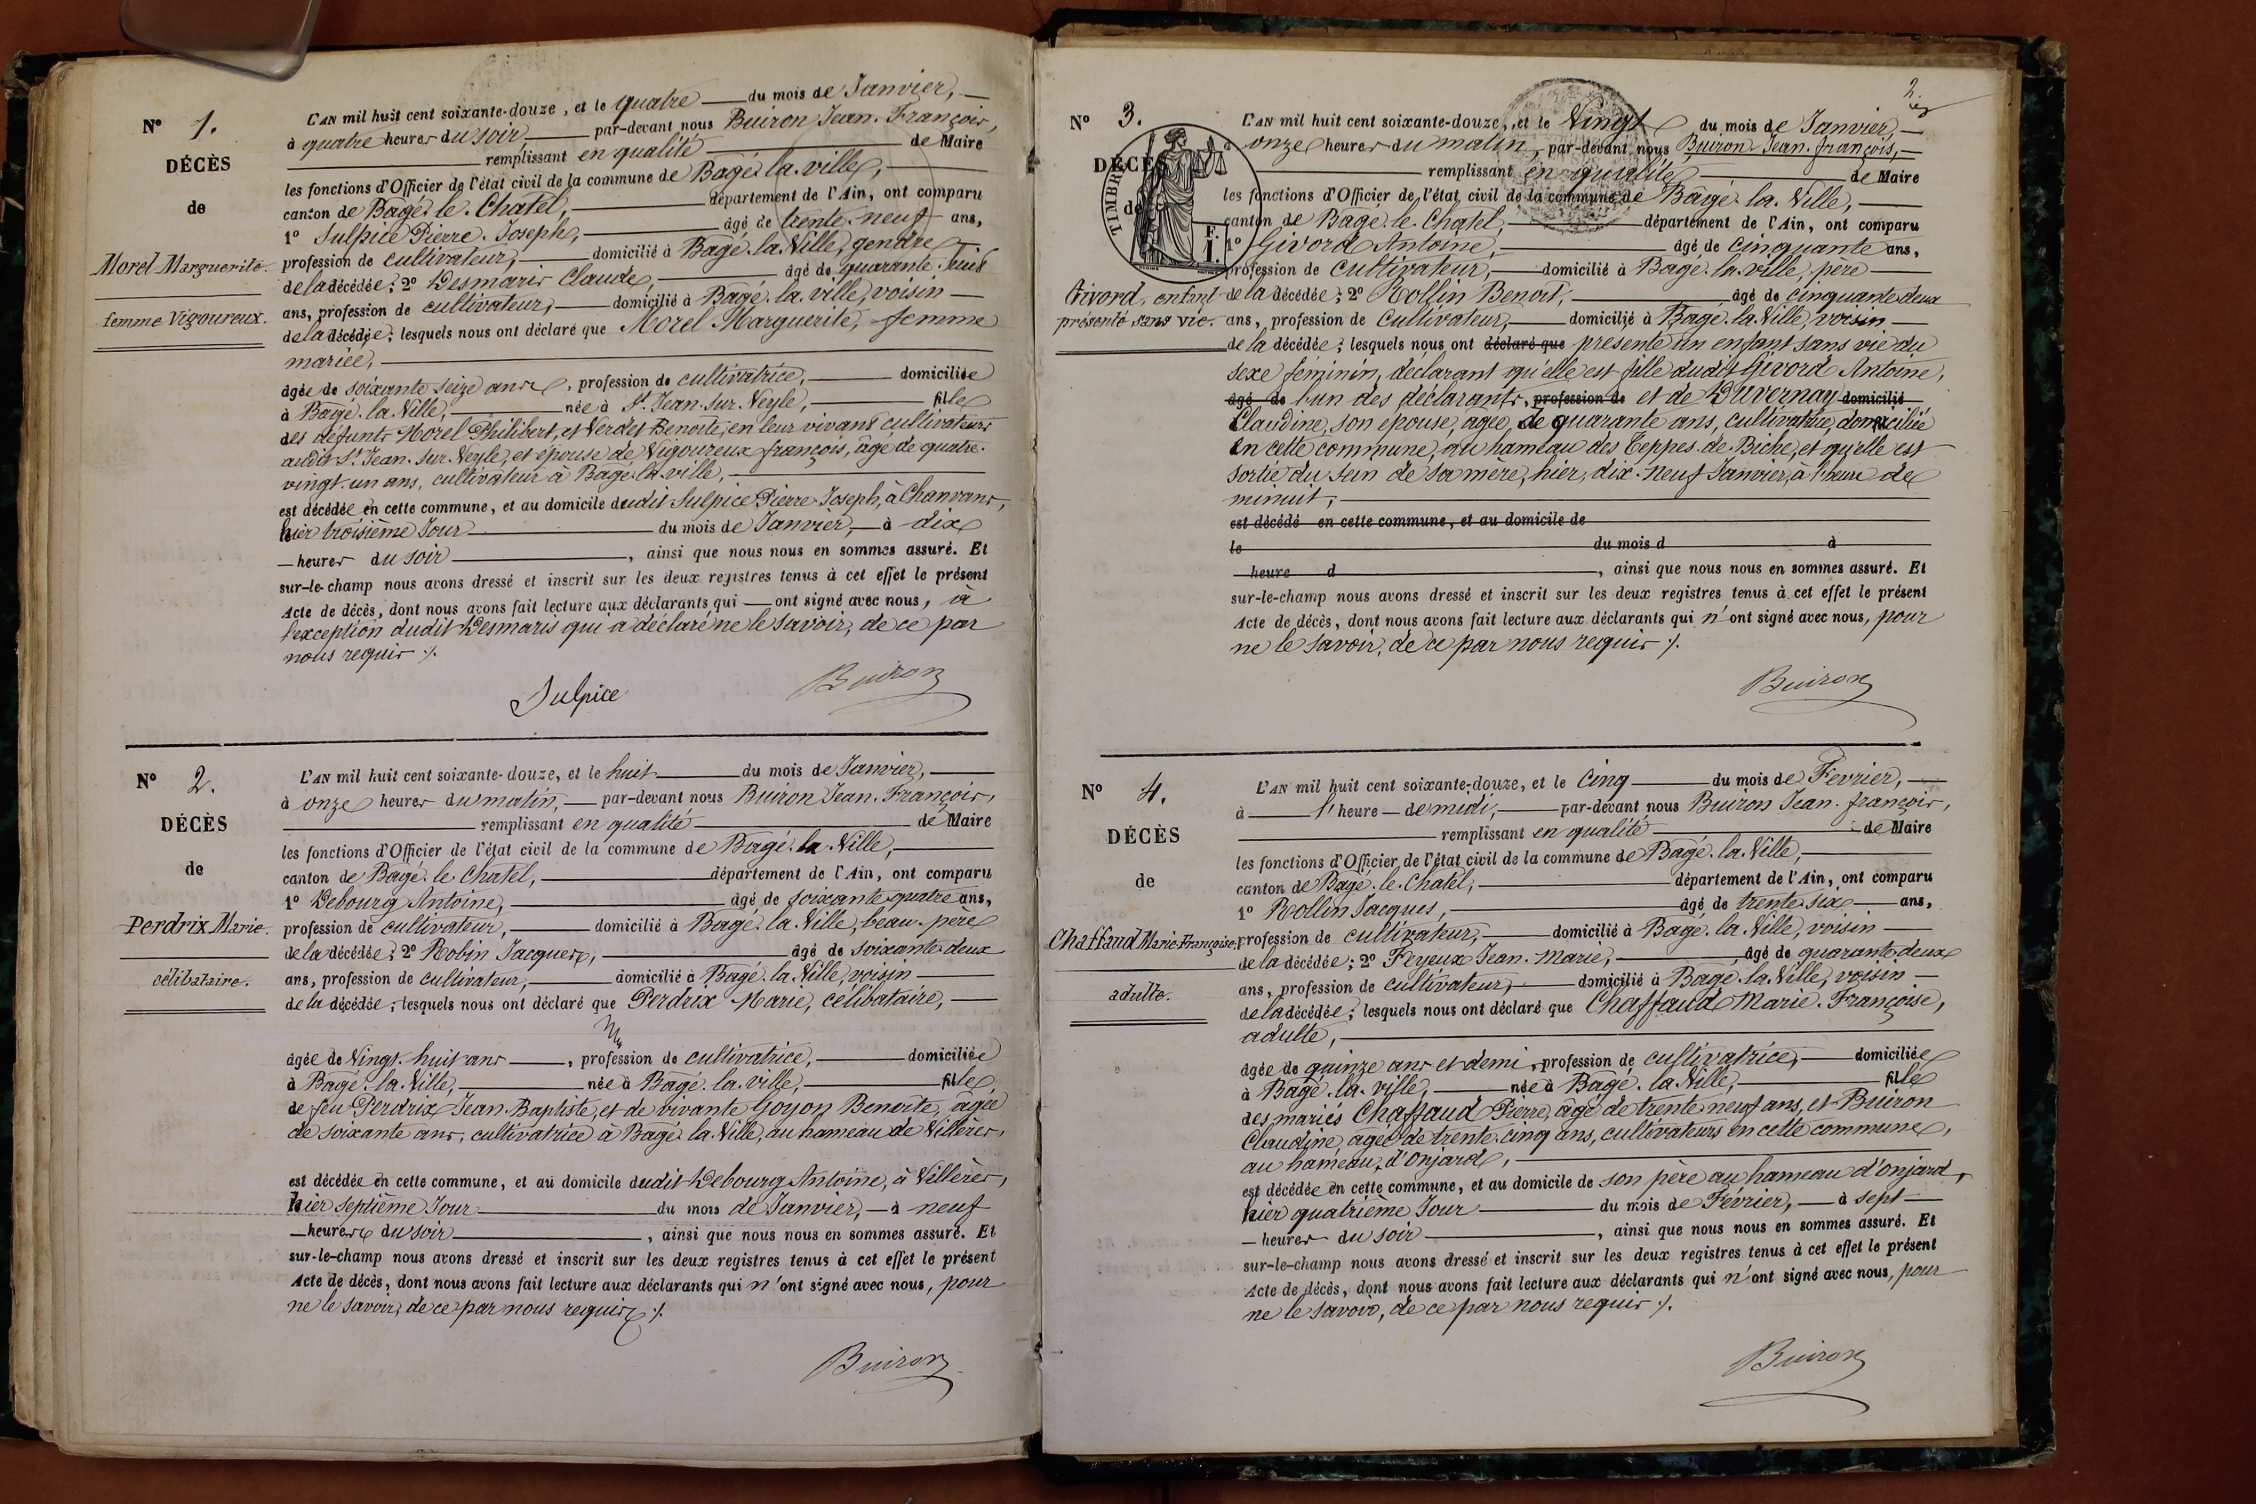 N° 1.
DÉCÈS
de
Morel Marguerite.
femme Vigoureux.
L'AN mil huit cent soixante-douze, et le quatre du mois de Janvier,
à quatre heures du soir, par-devant nous Buiron Jean-François,
remplissant en qualité de Maire
les fonctions d'Officier de l'état civil de la commune de Bâgé-la-ville,
canton de Bâgé-le-Chatel, département de l'Ain, ont comparu
1° Sulpice Pierre-Joseph, âgé de trente-neuf ans,
profession de cultivateur, domicilié à Bâgé-la-Ville, gendre
de la décédée; 2° Desmaris Claude, âgé de quarante-huit
ans, profession de cultivateur, domicilié à Bâgé-la-ville, voisin
de la décédée; lesquels nous ont déclaré que Morel Marguerite, femme
mariée,
âgée de soixante seize ans, profession de cultivatrice, domiciliée
à Bâgé-la-Ville, née à St. Jean-sur-Veyle, fille
des défunts Morel Philibert, et Verdet Benoite, en leur vivant cultivateurs
audit St. Jean-sur-Veyle, et épouse de Vigoureux françois, âgé de quatre-
vingt-un ans, cultivateur à Bâgé-la-ville,
est décédée en cette commune, et au domicile dudit Sulpice Pierre-Joseph, à Chanvans,
hier troisième Jour du mois de Janvier, à dix
heures du soir, ainsi que nous nous en sommes assuré. Et
sur-le-champ nous avons dressé et inscrit sur les deux registres tenus à cet effet le présent
Acte de décès, dont nous avons fait lecture aux déclarants qui ont signé avec nous, à
l'exception dudit Desmaris qui a déclaré ne le savoir, de ce par
nous requis ./.
Sulpice Buiron
N° 2.
DÉCÈS
de
Perdrix Marie.
célibataire.
L'AN mil huit cent soixante-douze, et le huit du mois de Janvier,
à onze heures du matin, par-devant nous Buiron Jean-François,
remplissant en qualité de Maire
les fonctions d'Officier de l'état civil de la commune de Bâgé-la-Ville,
canton de Bâgé-le-Chatel, département de l'Ain, ont comparu
1° Debourg Antoine, âgé de soixante quatre ans,
profession de cultivateur, domicilié à Bâgé-la-Ville, beau-père
de la décédée; 2° Robin Jacques, âgé de soixante deux
ans, profession de cultivateur, domicilié à Bâgé-la-Ville, voisin
de la décédée; lesquels nous ont déclaré que Perdrix Marie, célibataire,
âgée de Vingt-huit ans, profession de cultivatrice, domiciliée
à Bâgé-la-Ville, née à Bâgé-la-ville, fille
de feu Perdrix Jean-Baptiste, et de vivante Goyon Benoite, âgée
de soixante ans, cultivatrice à Bâgé-la-Ville, au hameau de Villères,
est décédée en cette commune, et au domicile dudit Debourg Antoine, à Villères,
hier septième Jour du mois de Janvier, à neuf
heures du soir, ainsi que nous nous en sommes assuré. Et
sur-le-champ nous avons dressé et inscrit sur les deux registres tenus à cet effet le présent
Acte de décès, dont nous avons fait lecture aux déclarants qui n'ont signé avec nous, pour
ne le savoir, de ce par nous requis ./.
Buiron
2.
N° 3.
DÉCÈS
de
TIMBRE
F. I.
Givord, enfant
présenté sans vie.
L'AN mil huit cent soixante-douze, et le Vingt du mois de Janvier,
à onze heures du matin, par-devant nous Buiron Jean-françois,
remplissant en qualité de Maire
les fonctions d'Officier de l'état civil de la commune de Bâgé-la-Ville,
canton de Bâgé-le-Chatel, département de l'Ain, ont comparu
1° Givord Antoine, âgé de cinquante ans,
profession de cultivateur, domicilié à Bâgé-la-ville, père
de la décédée; 2° Rollin Benoit, âgé de cinquante deux
ans, profession de cultivateur, domicilié à Bâgé-la-Ville, voisin
de la décédée; lesquels nous ont déclaré que présenté un enfant sans vie du
sexe féminin, déclarant qu'elle est fille dudit Givord Antoine,
âgé de l'un des déclarants, profession de et de Duvernay domicilié
Claudine, son épouse, âgée de quarante ans, cultivatrice, domiciliée
en cette commune, au hameau des Teppes-de-Biche, et qu'elle est
sortie du sein de sa mère, hier, dix-neuf Janvier, à l'heure de
minuit,
est décédé en cette commune, et au domicile de
le du mois d à
heure d , ainsi que nous nous en sommes assuré. Et
sur-le-champ nous avons dressé et inscrit sur les deux registres tenus à cet effet le présent
Acte de décès, dont nous avons fait lecture aux déclarants qui n'ont signé avec nous, pour
ne le savoir, de ce par nous requis ./.
Buiron
N° 4.
DÉCÈS
de
Chaffaud Marie-Françoise,
adulte.
L'AN mil huit cent soixante-douze, et le cinq du mois de Fevrier,
à l'heure de midi, par-devant nous Buiron Jean-françois,
remplissant en qualité de Maire
les fonctions d'Officier de l'état civil de la commune de Bâgé-la-Ville,
canton de Bâgé-le-Chatel, département de l'Ain, ont comparu
1° Rollin Jacques, âgé de trente six ans,
profession de cultivateur, domicilié à Bâgé-la-Ville, voisin
de la décédée; 2° Feyeux Jean-Marie, âgé de quarante deux
ans, profession de cultivateur, domicilié à Bâgé-la-Ville, voisin
de la décédée; lesquels nous ont déclaré que Chaffaud Marie-Françoise,
adulte,
âgée de quinze ans et demi, profession de cultivatrice, domiciliée
à Bâgé-la-ville, née à Bâgé-la-Ville, fille
des mariés Chaffaud Pierre, âgé de trente neuf ans, et Buiron
Claudine, agée de trente-cinq ans, cultivateurs en cette commune,
au hameau d'Onjard,
est décédée en cette commune, et au domicile de son père au hameau d'Onjard,
hier quatrième Jour du mois de Février, à sept
heures du soir, ainsi que nous nous en sommes assuré. Et
sur-le-champ nous avons dressé et inscrit sur les deux registres tenus à cet effet le présent
Acte de décès, dont nous avons fait lecture aux déclarants qui n'ont signé avec nous, pour
ne le savoir, de ce par nous requis ./.
Buiron